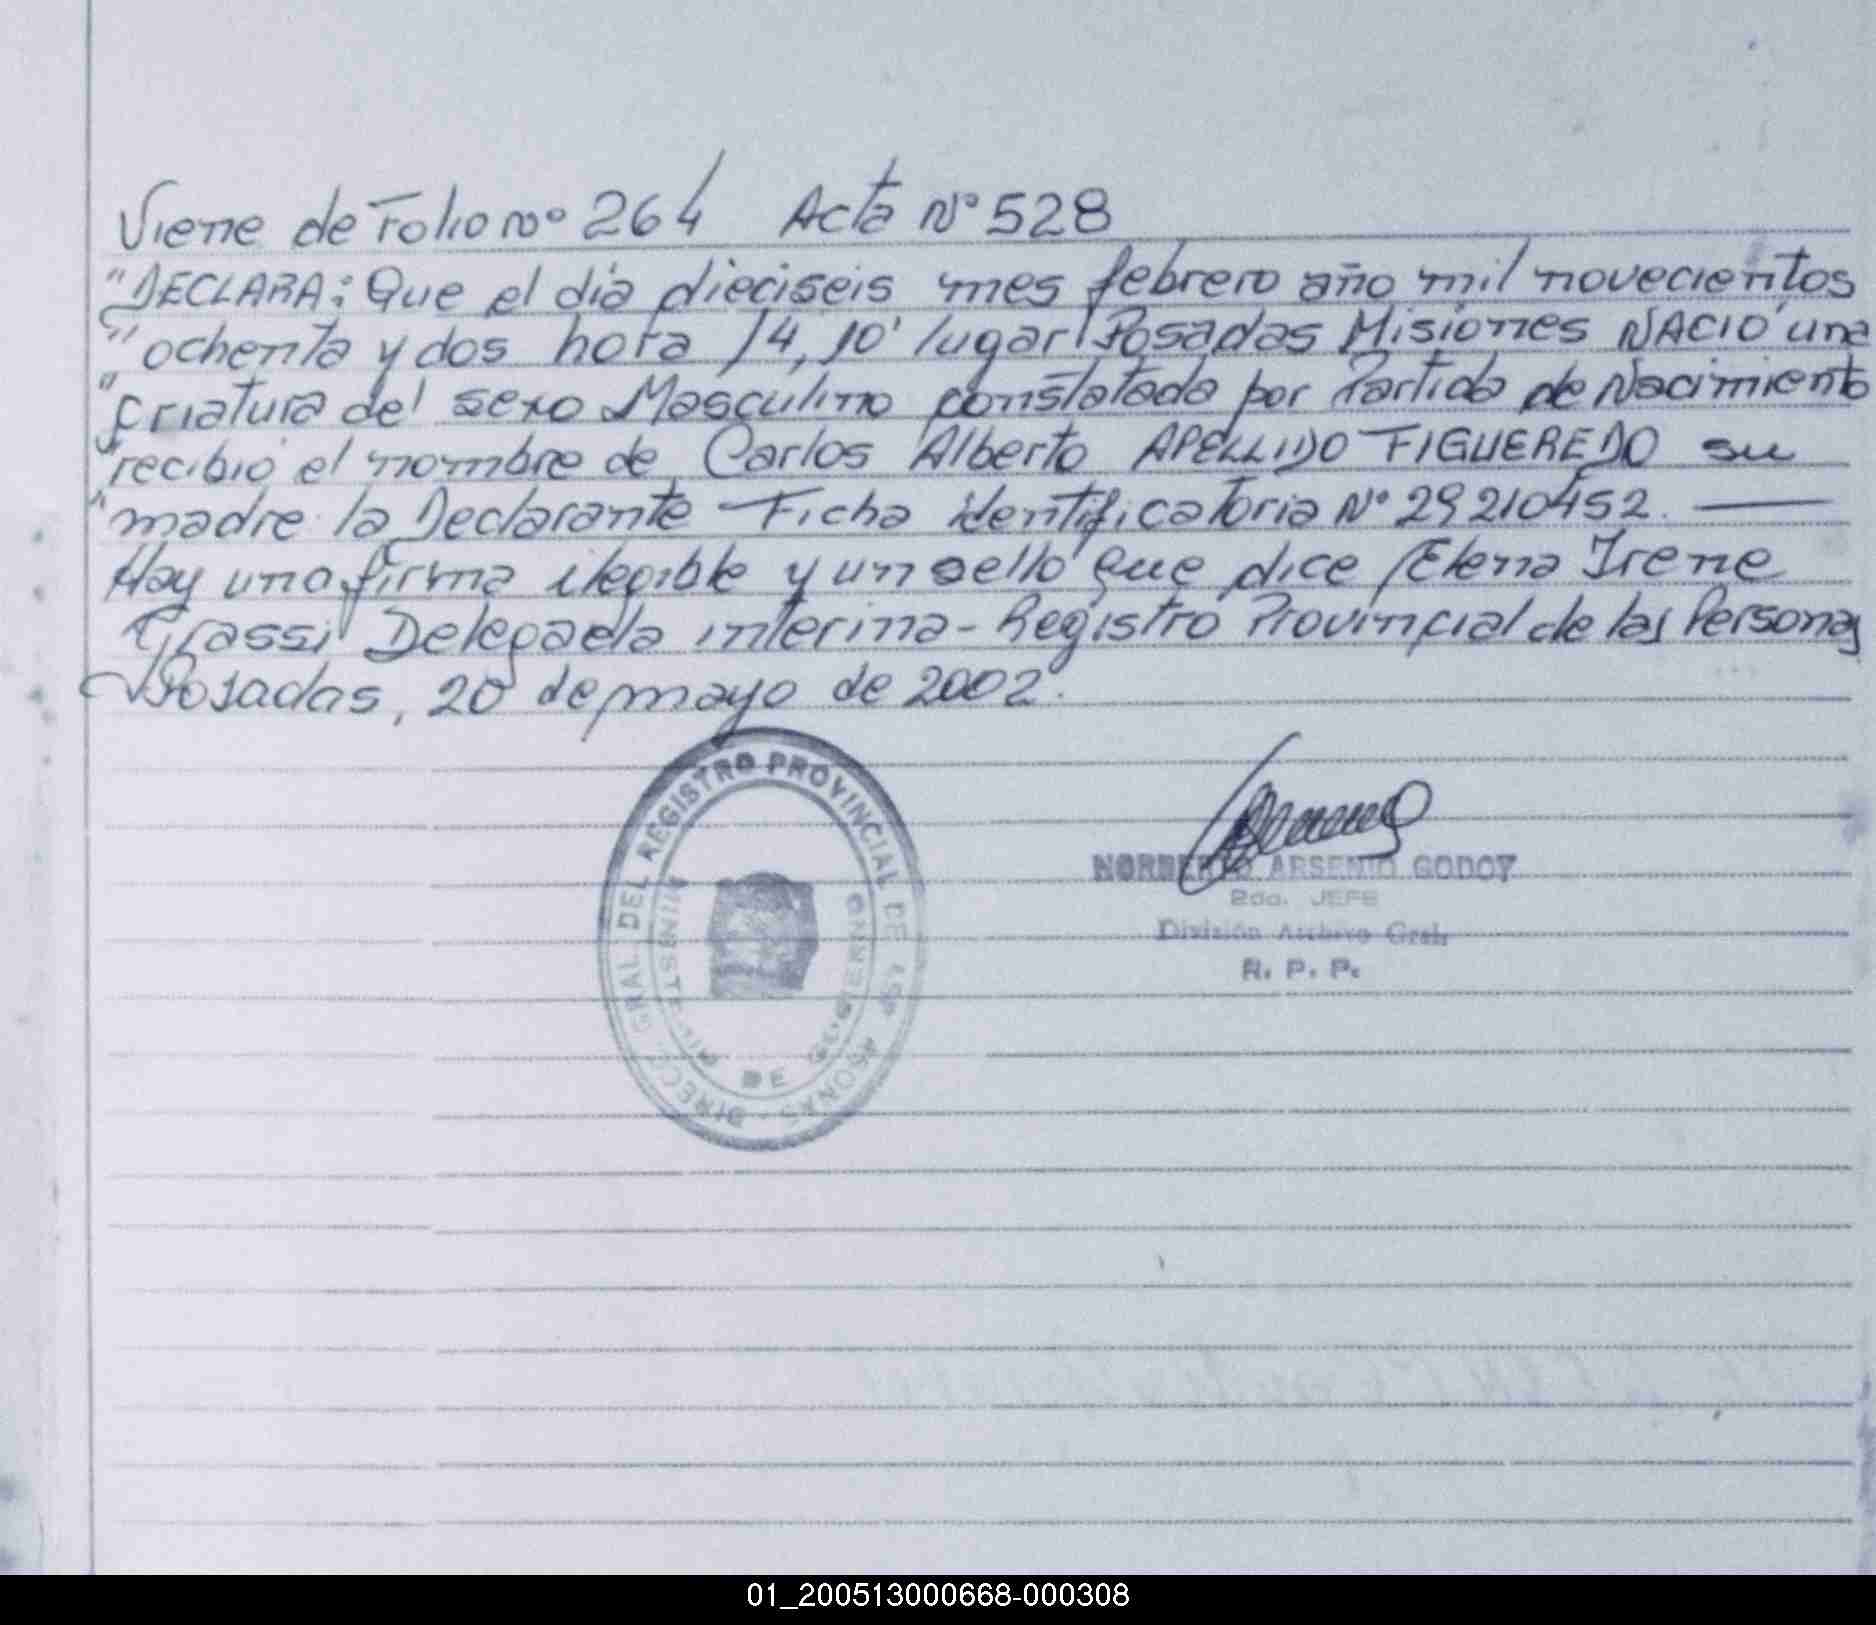 Viene de Folio nº 264 Acta Nº 528
"DECLARA: Que el día dieciseis mes febrero año mil novecientos
"ochenta y dos hora 14,10' lugar Posadas Misiones NACIO una
"criatura del sexo Masculino constatada por Partida de Nacimiento
"recibió el nombre de Carlos Alberto APELLIDO FIGUEREDO su
"madre la Declarante Ficha identificatoria Nº 29210452. —
Hay una firma ilegible y un sello que dice Elena Irene
Grassi Delegada interina - Registro Provincial de las Personas
Posadas, 20 de mayo de 2002.
DIRECC. GRAL. DEL REGISTRO PROVINCIAL DE LAS PERSONAS -
MINISTERIO DE GOBIERNO
NORBERTO ARSENIO GODOY
2do. JEFE
División Archivo Gral.
R. P. P.
01_200513000668-000308